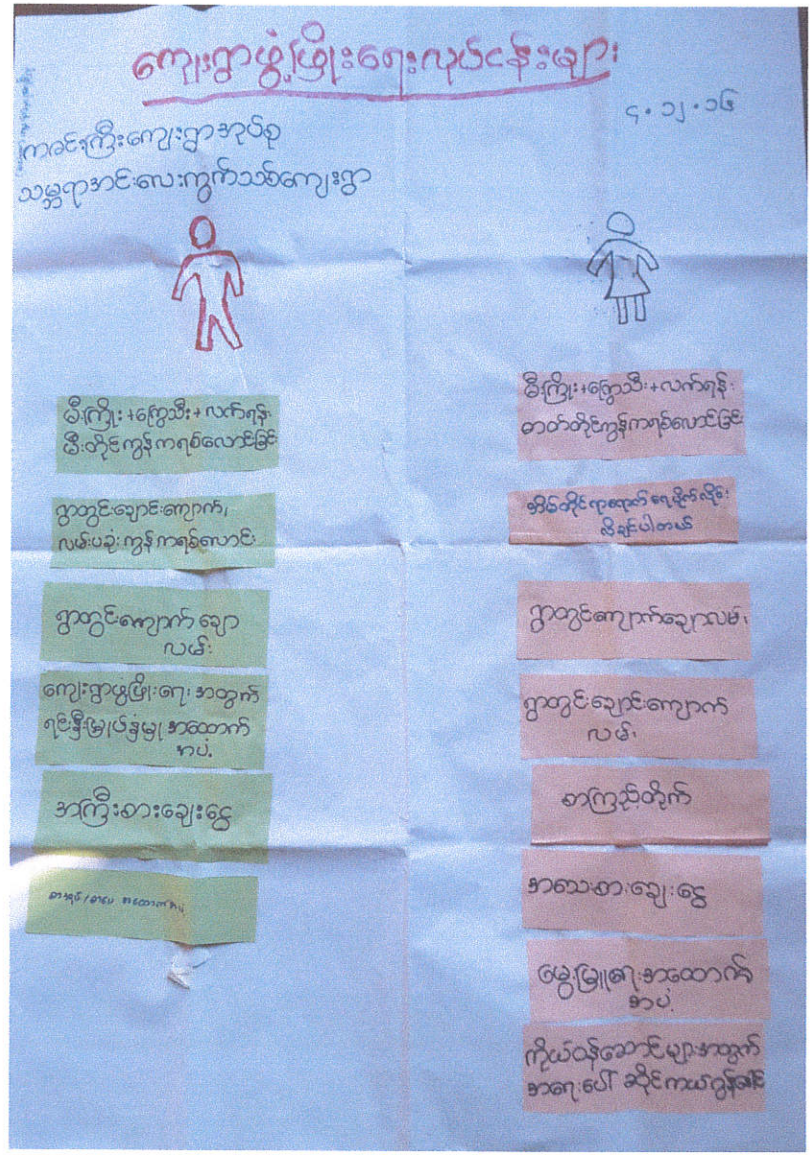 ကျေးရွာဖွံ့ဖြိုးရေးလုပ်ငန်းများ
၄.၁၂.၁၆
ကခင်းကြီးကျေးရွာအုပ်စု
သမ္ဘရာအင်းလေးကွက်သစ်ကျေးရွာ
မီးကြိုး+ကြွေသီး+လက်ရန်း
မီးတိုင်ကွန်ကရစ်လောင်းခြင်း
ရွာတွင်းချောင်းကျောက်၊
လမ်းပခုံးကွန်ကရစ်လောင်း
ရွာတွင်းကျောက်ချော
လမ်း
ကျေးရွာဖွံ့ဖြိုးရေးအတွက်
ရင်းနှီးမြှုပ်နှံမှု အထောက်
အပံ့
အကြီးစားချေးငွေ
စာအုပ်/စာပေ အထောက်အပံ့
မီးကြိုး+ကြွေသီး+လက်ရန်း
ဓာတ်တိုင်ကွန်ကရစ်လောင်းခြင်း
အိမ်တိုင်ရာရောက် ရေပိုက်လိုင်း
လိုချင်ပါတယ်
ရွာတွင်းကျောက်ချောလမ်း
ရွာတွင်းချောင်းကျောက်
လမ်း
စာကြည့်တိုက်
အသေးစားချေးငွေ
မွေးမြူရေးအထောက်
အပံ့
ကိုယ်ဝန်ဆောင်များအတွက်
အရေးပေါ် ဆိုင်ကယ်